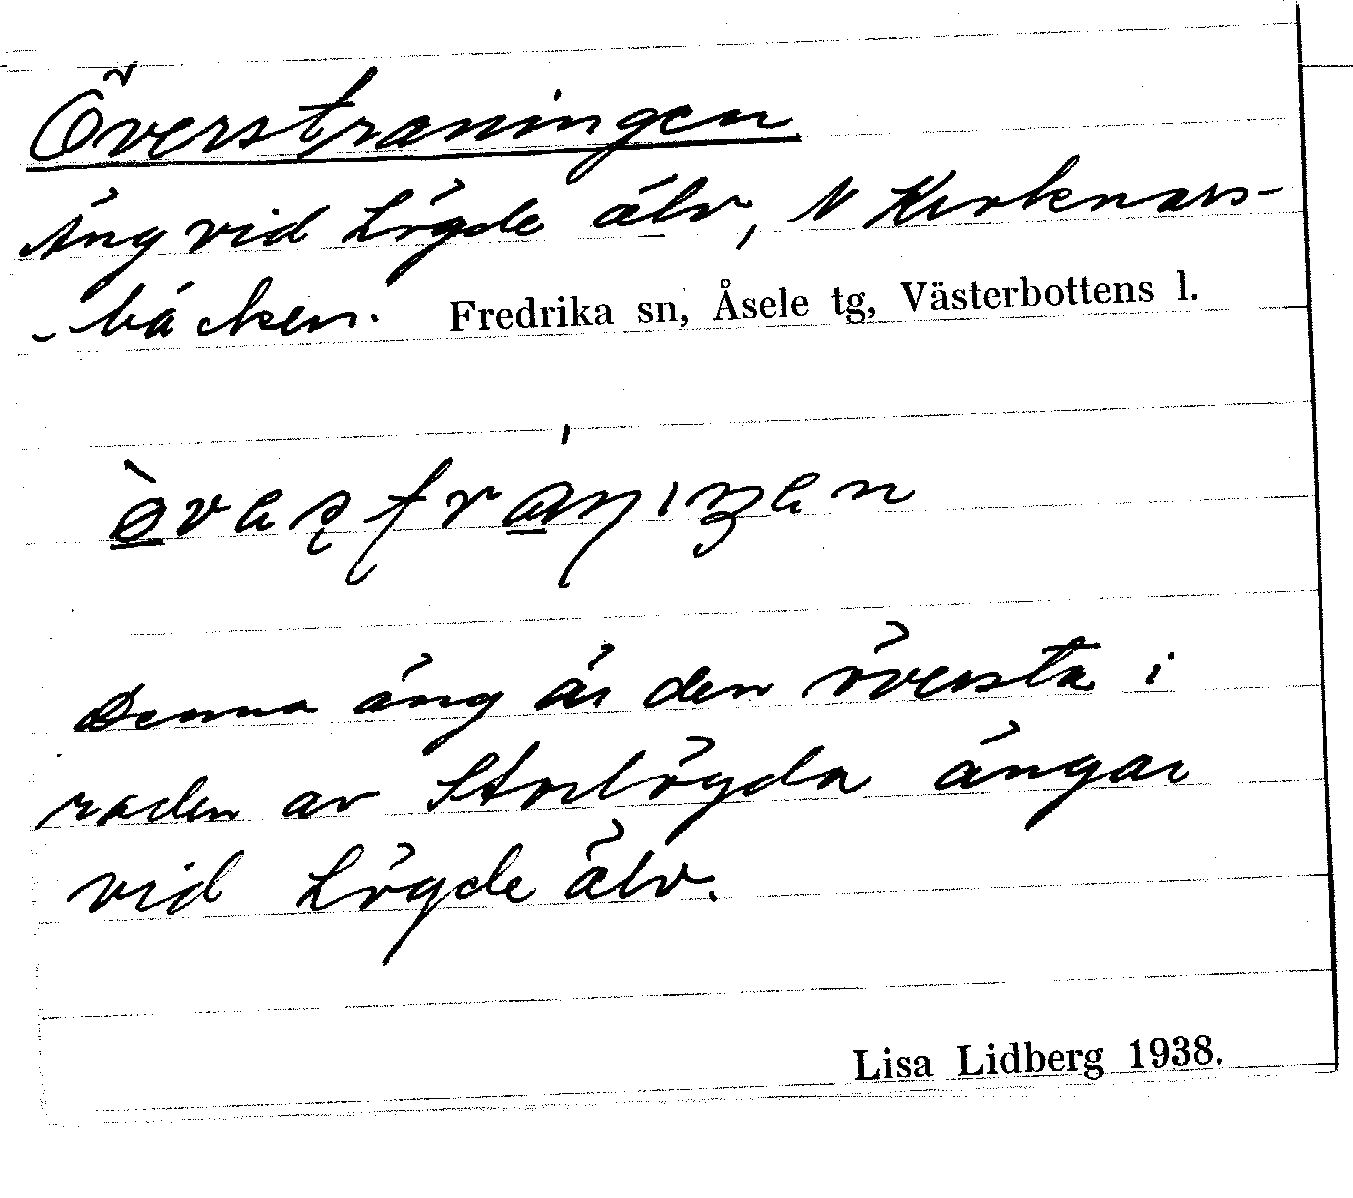 Överstraningen
Äng vid Lögde älv, N Kvarnars-
-bäcken. Fredrika sn, Åsele tg, Västerbottens l.
Denna äng är den översta i
raden av Storlögda ängar
vid Lögde älv.
Lisa Lidberg 1938.